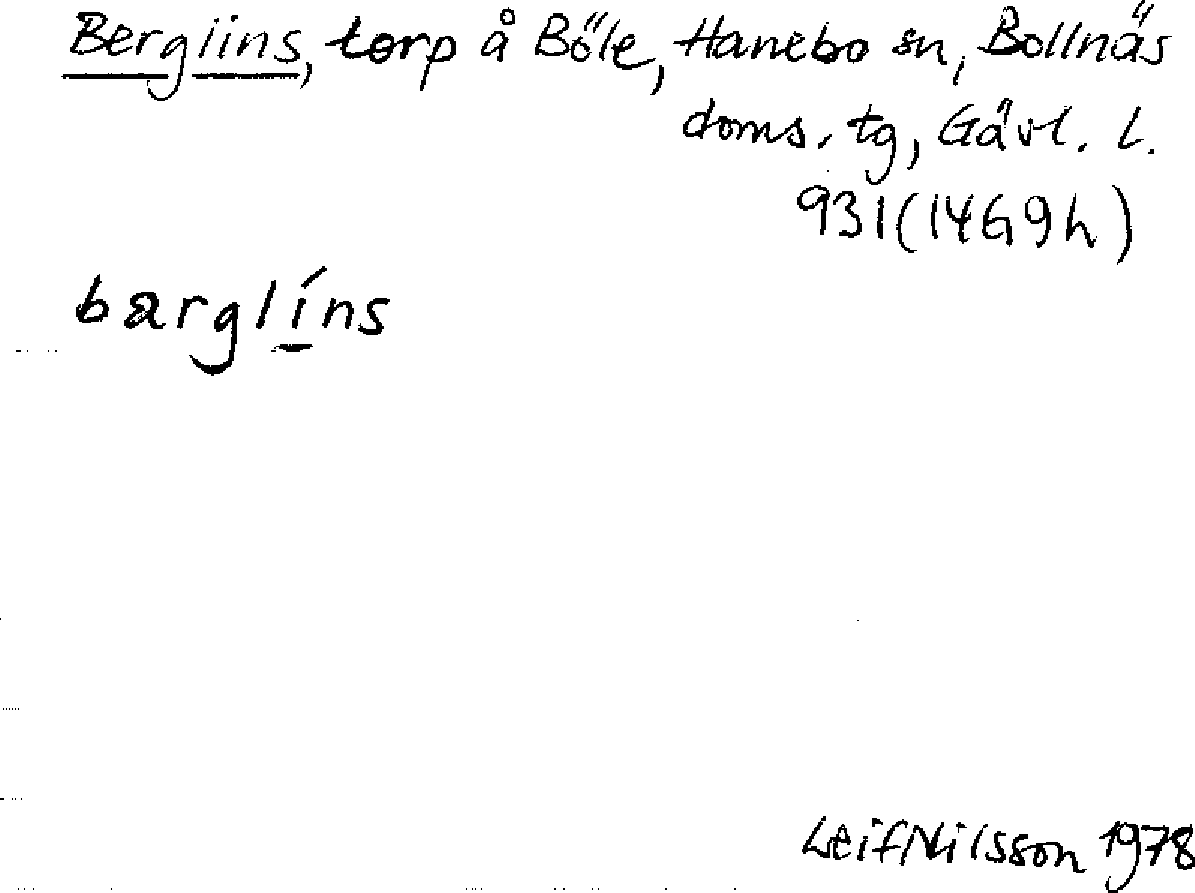 Berglins, torp å Böle, Hanebo sn, Bollnäs
doms. tg, Gävl. l.
931(14G9h)
barglíns
Leif Nilsson 1978